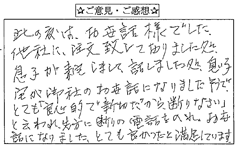 ☆ご意見・ご感想☆
此の度は、お世話様でした。
他社に、注文致して居りました処
息子が来ましして、話しました処、息子
宅が御社のお世話になりましたそうで、
とても「良心的で親切だから断りなさい」
と云われ、先方に断りの電話を入れ、お世
話になりました。とても良かったと満足しています